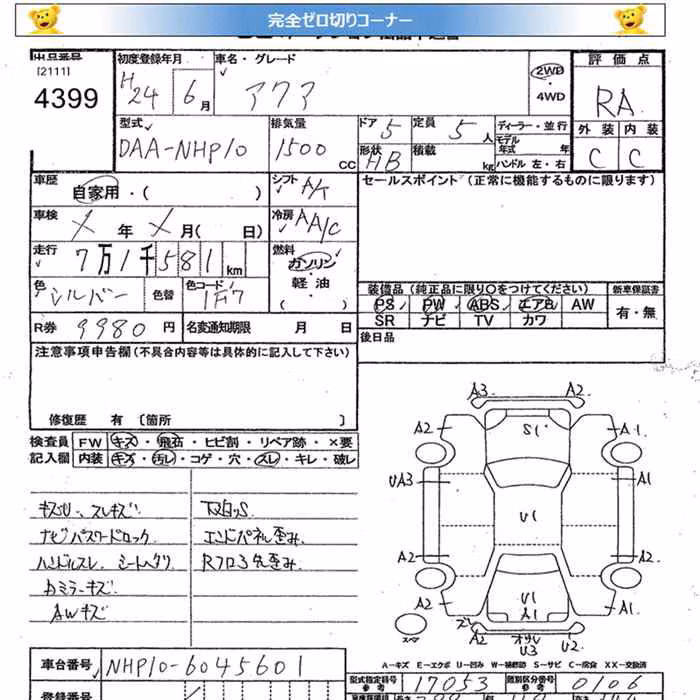 完全ゼロ切りコーナー
出品番号 初度登録年月 車名・グレード 評価点
[2111] H24 6月 アクア 2WD RA
4399 ・4WD
型式 排気量 ドア 5 定員 5人 ディーラー・並行 外装 内装
DAA-NHP10 1500cc 形状 HB 積載 kg モデル年式 年 C C
ハンドル 左・右
車歴 自家用・( ) シフト A/t セールスポイント (正常に機能するものに限ります)
車検 X年 X月( 日) 冷房 AA/C
走行 7万1千581km 燃料 ガソリン・軽油・( )
色 シルバー 色替 色コード 1F7 装備品(純正品に限り○をつけてください) 新車保証書
PS PW ABS エアB AW 有・無
R券 9980円 名変通知期限 月 日 SR ナビ TV カワ
後日品
注意事項申告欄(不具合内容等は具体的に記入して下さい)
修復歴 有 〔箇所 〕
検査員 FW キズ・飛石・ヒビ割・リペア跡・×要
記入欄 内装 キズ・汚れ・コゲ・穴・スレ・キレ・破レ
ナビパスワードロック エンドパネル歪み
ハンドルスレ シートヘタリ
カミラーキズ
AWキズ
A3 A2
A2 S1 A1
UA3 A1
U1
A2 A2
A2 U1 A1
A1
スペア オサレ U3 U2
A-キズ E-エクボ U-凹み W-補修跡 S-サビ C-腐食 XX-交換済
車台番号 NHP10-6045601 型式指定番号 参考 17053 類別区分番号 参考 0106
登録番号